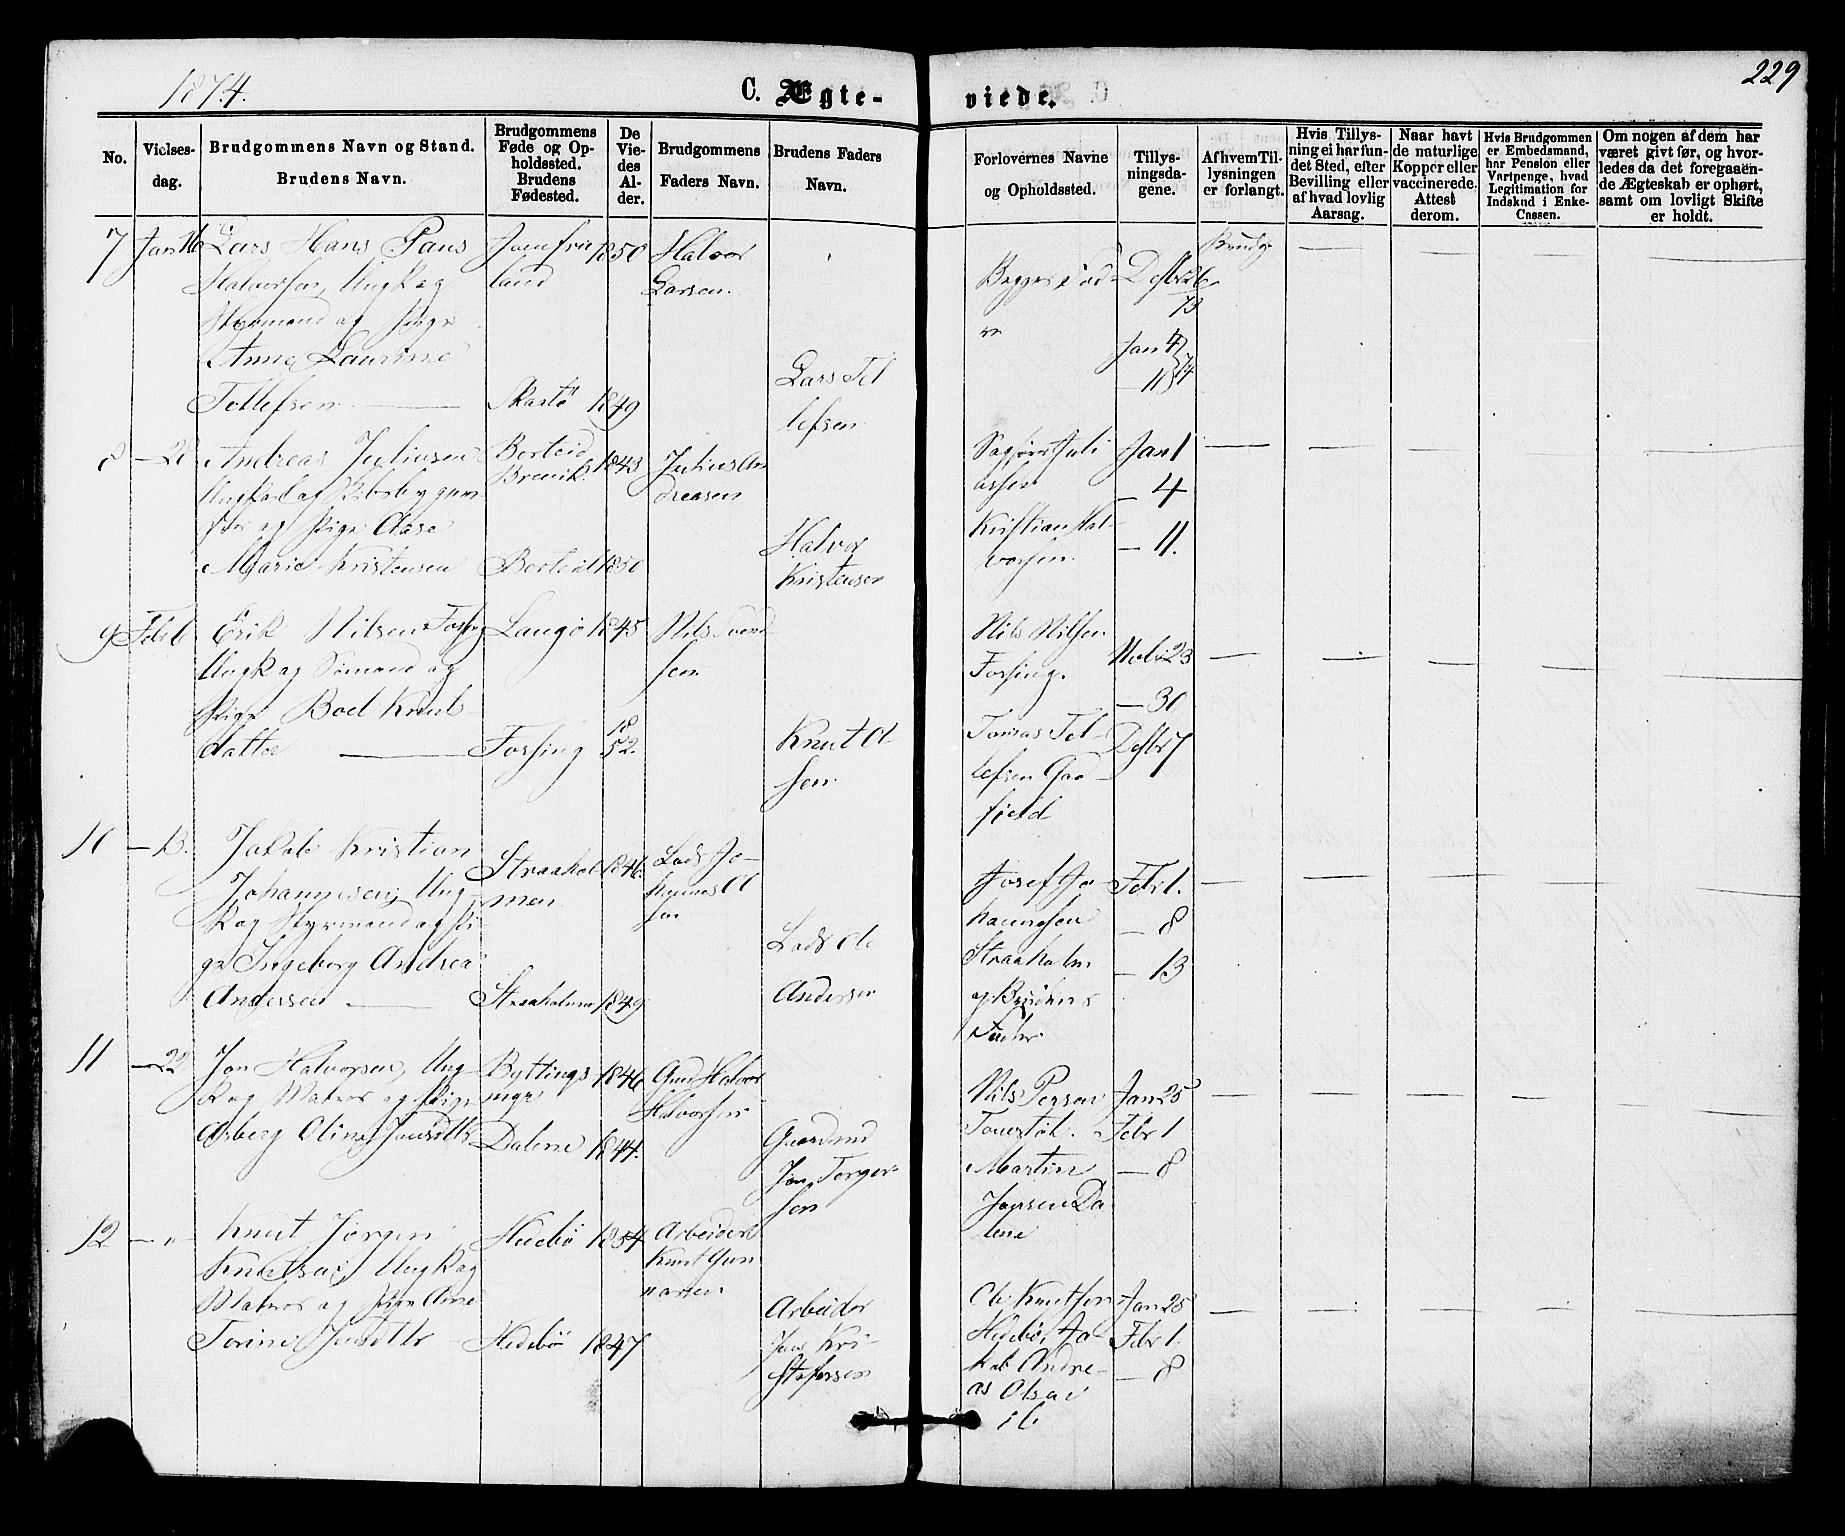 1874.
C. Ægte-
viede.
229
No.
Vielses-
dag.
Brudgommens Navn og Stand.
Brudens Navn.
Brudgommens
Føde og Op-
holdssted.
Brudens
Fødested.
De
Vie-
des
Al-
der.
Brudgommens
Faders Navn.
Brudens Faders
Navn.
Forlovernes Navne
og Opholdssted.
Tillys-
ningsda-
gene.
Af hvem Til-
lysningen
er forlangt.
Hvis Tillys-
ning ei har fun-
det Sted, efter
Bevilling eller
af hvad lovlig
Aarsag.
Naar havt
de naturlige
Kopper eller
vaccinerede.
Attest
derom.
Hvis Brudgommen
er Embedsmand,
har Pension eller
Vartpenge, hvad
Legitimation for
Indskud i Enke-
Cassen.
Om nogen af dem har
været givt før, og hvor-
ledes da det foregaaen-
de Ægteskab er ophørt,
samt om lovligt Skifte
er holdt.
7
Jan 16
Lars Hans Paus
Halvorsen, Ungk og
Styrmand og Pige
Anne Laurine
Tollefsen
Jomfru
land
Skaatø
1850
1849
Halvor
Larsen
Lars Tol
lefsen
Begges Fæd
re
Desbr 26
73
Jan 4
74
— 11
Brudg
8
Andreas Juliusen
Ungkarl og
og Pige Aase
Marie Kristensen
Borteid
Brevik
Borteid
1843
1850
Julius An
dreasen
Halvor
Kristensen
Kristian Hal
vorsen
Jan 1
— 4
— 11.
9
Febr 6
Erik Nilsen Fossing
Ungk og Sømand og
Pige Boel Knuts
datter
Langø
Fossing
1845
18
52.
Nils Svend
sen
Knut Ol
sen
Nils Nilsen
Fossing.
Tomas Tol
lefsen Gaa
fjeld
Novbr 23
— 30
Desbr 7
10
— 13.
Jakob Kristian
Johannesen, Ung
k og Styrmand og Pi
ge Ingeborg Andrea
Andersen
Straahol
men
Straaholmen
1846
1849
Lods Jo-
hannes Ol
sen
Lods Ole
Andersen
Josef Jo
hannesen
Straaholm
og Brudens
Fader
Febr 1.
— 8
— 13
11
— 22
Jon Halvorsen, Ung
k og Matros og Pige
Asberg Oline Jonsdttr
Byttings
myr
Dalene
1846
1844.
Gmd Halvor
Halvorsen
Gaardmd
Jon Torger
sen
Nils Persen
Martin
Jonsen Da
lene
Jan 25
Febr 1
— 8
12
— " —
Knut Jørgen
Knutsen, Ungk og
Matros og Pige Ane
Torine Jensdttr
Hedebø
Hedebø
1854
1847
Arbeider
Knut Gun
narsen
Arbeider
Jens Kri
stofersen
Ole Knutsen
Hedebø, Ja
kob Andre
as Olsen
ib
Jan 25
Febr 1.
— 8